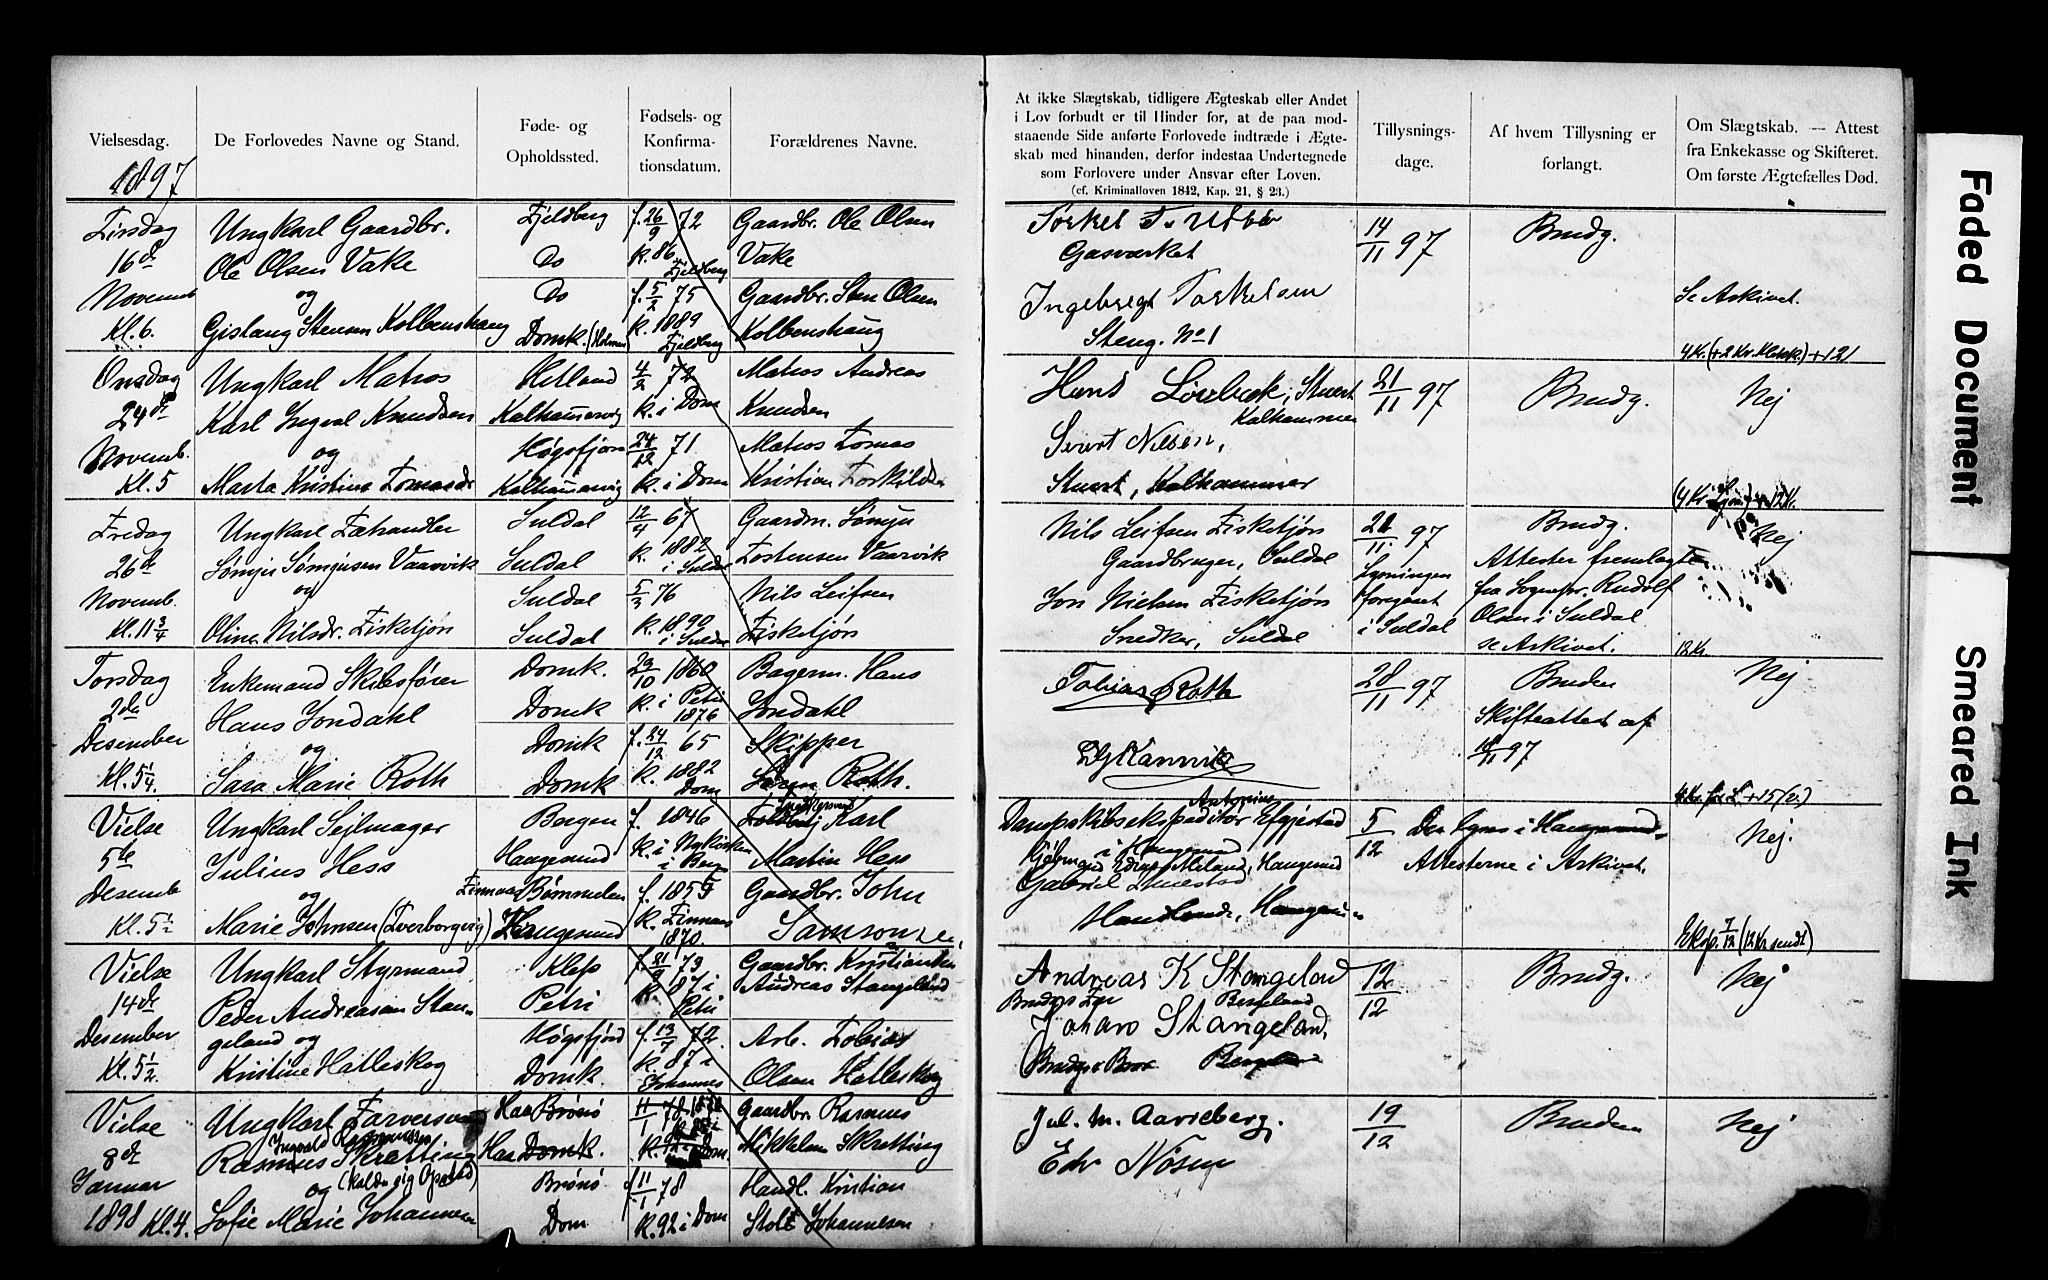 Vielsesdag.
1897
De Forlovedes Navne og Stand.
Føde- og
Opholdssted.
Fødsels- og
Konfirma-
tionsdatum.
Forældrenes Navne.
Tirsdag
16de
Novemb
Kl. 6.
Ungkarl Gaardbr.
Ole Olsen Vake
og
Gislaug Stensen Kolbenshaug
Fjeldberg
Do
Do
Domk. (Holmen
f. 26/9 72
k. 86 Fjeldberg
f. 5/2 75
k. 1889
Fjeldberg
Gaardbr. Ole Olsen
Vake
Gaardbr. Sten Olsen
Kolbenshaug
Onsdag
24de
Novemb.
Kl. 5
Ungkarl Matros
Karl Ingval Knudsen
og
Marta Kristine Tomasdr
Hetland
Kalhammervig
Høgsfjord
Kalhammervig
4/2 72
k. i Dom
24/12 71
k. i Dom
Matros Andreas
Knudsen
Matros Tomas
Kristian Torkildsen
Fredag
26de
Novemb.
Kl. 11 3/4
Ungkarl Fæhandler
Sømju Sømjusen Vaarvik
og
Oline Nilsdr. Fisketjøn
Suldal
Suldal
Suldal
Suldal
12/4 67
k. 1882
i Suldal
5/3 76
k. 1890
i Suldal
Gaardm. Sømju
Tostensen Vaarvik
Nils Leifsen
Fisketjøn
Torsdag
2de
Desember
Kl. 5 1/4
Enkemand Skibsfører
Hans Jondahl
og
Sara Marie Roth
Domk.
Domk
Domk
Domk
23/10 1860
k. i Petri
1876
f. 24/12 65
k. 1882
Dom
Bagerm. Hans
Jondahl
Skipper
Søren Roth.
Vielse
5te
Desemb
Kl. 5 1/2
Ungkarl Sejlmager
Julius Hess
og
Marie Johnsen (Tverborgvig)
Bergen
Haugesund
Finnaas Bømmelen
Haugesund
f. 1846
k. i Nykirken
i Berg
f. 1855
k. Finnaas
1870.
Karl
Martin Hess
Gaardbr. John
Samsonsen,
Vielse
14de
Desember
Kl. 5 1/2
Ungkarl Styrmand
Peder Andreasen Stan-
geland og
Kristine Hatleskog
Klep
Petri
Høgsfjord
Domk.
f. 21/9 73
k. 87 i
Petri
f. 13/7 72.
k. 87 i
Johannes
Gaardbr. Kristiansen
Andreas Stangeland
Arb. Tobias
Olsen Hatleskog
Vielse
8de
Januar
1898 Kl. 4.
Ungkarl Farversvend
Ingvald Rasmussen
Rasmus Skretting
og (kalder sig Opstad)
Sofie Marie Johannesen
Haa Brønø
Haa Domk.
Brønø
Dom
11/1 78 1870
k. 92 Dom
f. 11/1 78
k. 92 i Dom
Gaardbr. Rasmus
Mikkelsen Skretting
Handl. Kristian
Stolt Johannesen
At ikke Slægtskab, tidligere Ægteskab eller Andet
i Lov forbudt er til Hinder for, at de paa mod-
staaende Side anførte Forlovede indtræde i Ægte-
skab med hinanden, derfor indestaa Undertegnede
som Forlovere under Ansvar efter Loven.
(cf. Kriminalloven 1842, Kap. 21, § 23.)
Tillysnings-
dage.
Af hvem Tillysning er
forlangt.
Om Slægtskab. — Attest
fra Enkekasse og Skifteret.
Om første Ægtefælles Død.
Torkel T.
Gasværket
Ingebregt Torkelsen
Steng. No 1
14/11 97
Brudg.
Se Arkivet.
4 Kr. (+2 Kr. Klokk.) + 12
Hans Lovebæk, Stuert
Kalhammer
Sivert Nilsen,
Stuert, Kalhammer
21/11 97
Brudg.
Nej
(4 Kr. Lysn) + 12 Kr.
Nils Leifsen Fisketjøn
Gaardbruger, Suldal
Jon Nielsen Fisketjøn
Snedker, Suldal
21/11. 97
Lysningen
foregaaet
i Suldal
Brudg.
Attester fremlagte
fra Sognepr. Rudolf
Olsen i Suldal
se Arkivet.
Nej
12 Kr.
Tobias Roth
28/11 97
Bruden
Skifteattest af
/11 97
Nej
4 Kr. for L + 15 (0.)
Antonius
Dampskibsekspeditør Egjestad
i Haugesund
Gabriel
Handlende, Haugesun
5/12
Der lyses i Haugesund.
Attesterne i Arkivet.
Nej.
Eksp. 7/12 (12 Kr sendt)
Andreas K Stangeland
Brudgs Far Bergeland
Johan Stangeland,
Brudgs Bror Bergeland
12/12
Brudg.
Nej
Jul. M. Aarreberg,
Edv Nøsen
19/12
Bruden
Nej
Faded Document
Smeared Ink